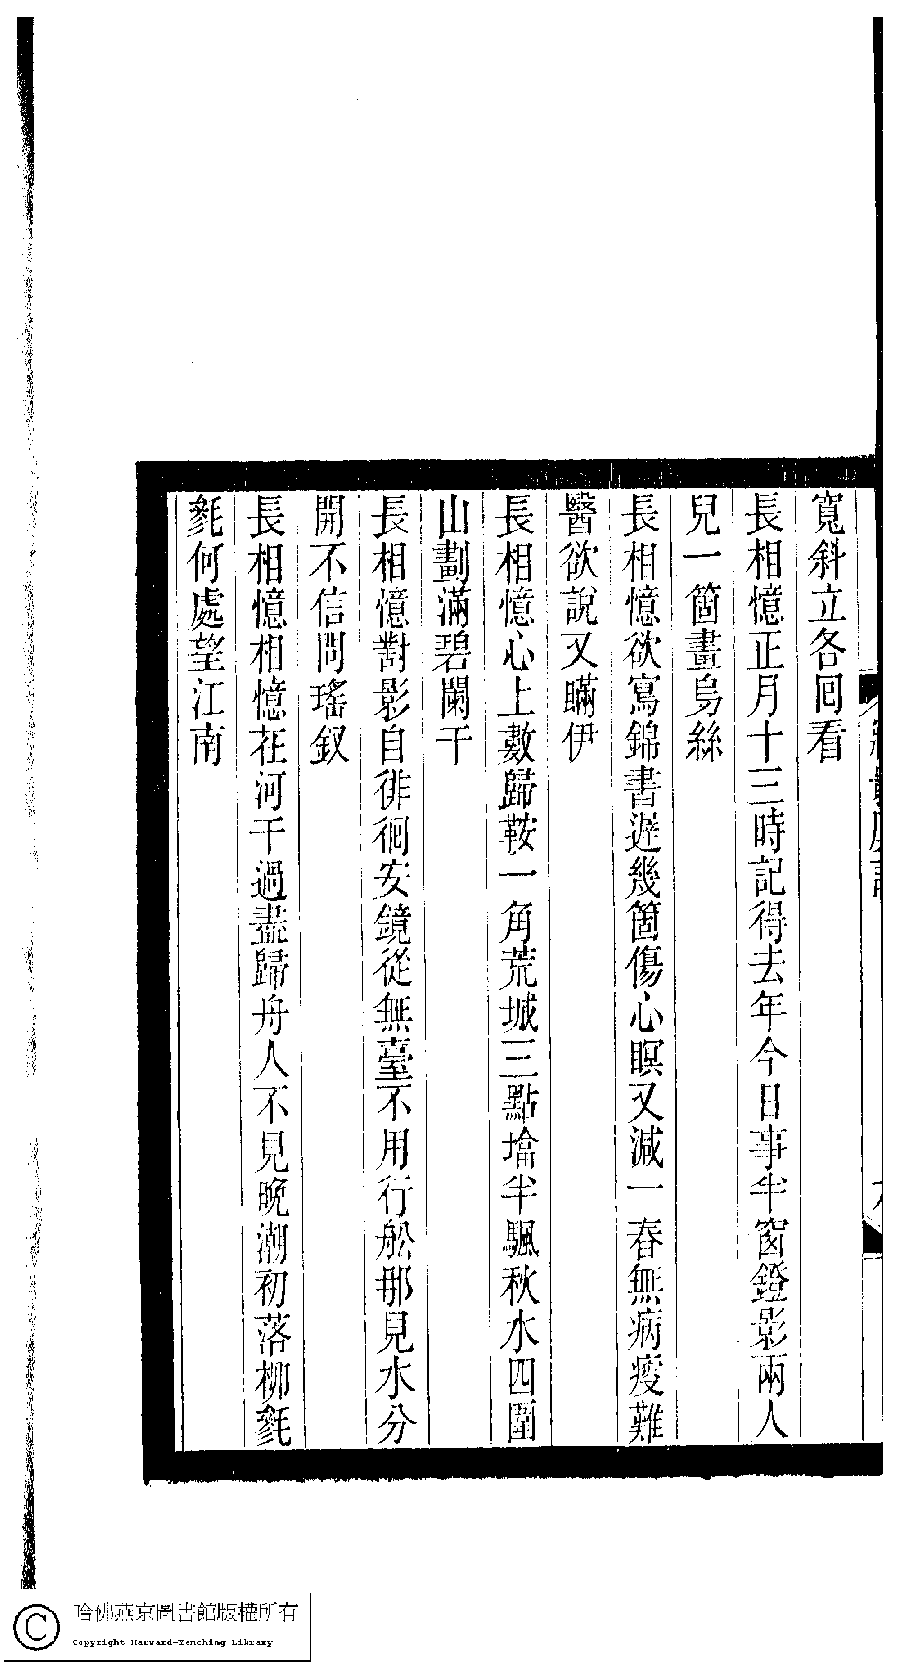 寬斜立各囘看
長相憶正月十三時記得去年今日事半窗鐙影兩人
兒一箇畫烏絲
長相憶欲寫錦書遲幾箇傷心暝又減一春無病疫難
醫欲說又瞞伊
長相憶心上數歸鞍一角荒城三點墖半颿秋水四圍
山劃滿碧闌干
長相憶對影自徘徊安鏡從無臺不用行舩那見水分
開不信問瑤釵
長相憶相憶在河干過盡歸舟人不見晚潮初落柳毿
毿何處望江南
哈佛燕京圖書館版權所有
Copyright Harvard-Yenching Library